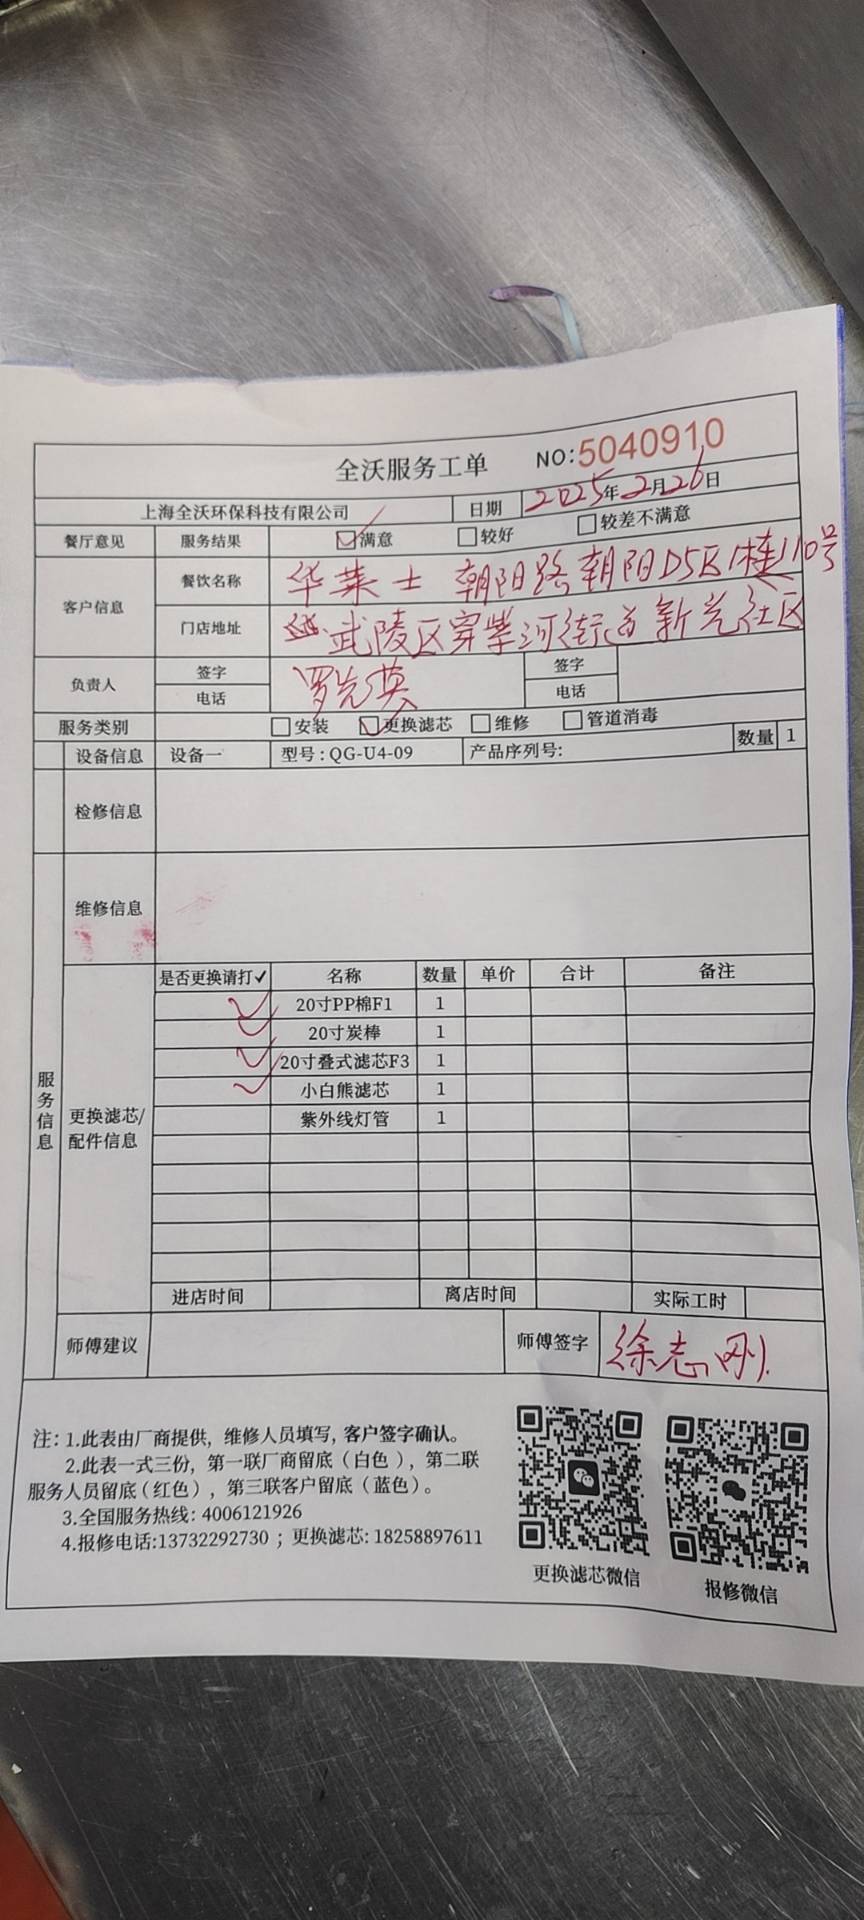 全沃服务工单 NO:5040910
上海全沃环保科技有限公司 日期 2025年2月26日
餐厅意见 服务结果 ☑满意 □较好 □较差不满意
客户信息 餐饮名称 华莱士 朝阳路朝阳D5区1栋110号
门店地址 武陵区穿紫河街道新光社区
负责人 签字 罗先英 签字
电话 电话
服务类别 □安装 ☑更换滤芯 □维修 □管道消毒
设备信息 设备一 型号:QG-U4-09 产品序列号: 数量 1
检修信息
维修信息
服务信息
更换滤芯/配件信息
是否更换请打✓ 名称 数量 单价 合计 备注
✓ 20寸PP棉F1 1
✓ 20寸炭棒 1
✓ 20寸叠式滤芯F3 1
✓ 小白熊滤芯 1
紫外线灯管 1
进店时间 离店时间 实际工时
师傅建议 师傅签字 徐志刚
注:1.此表由厂商提供，维修人员填写，客户签字确认。
2.此表一式三份，第一联厂商留底（白色），第二联
服务人员留底（红色），第三联客户留底（蓝色）。
3.全国服务热线: 4006121926
4.报修电话:13732292730；更换滤芯: 18258897611
更换滤芯微信 报修微信